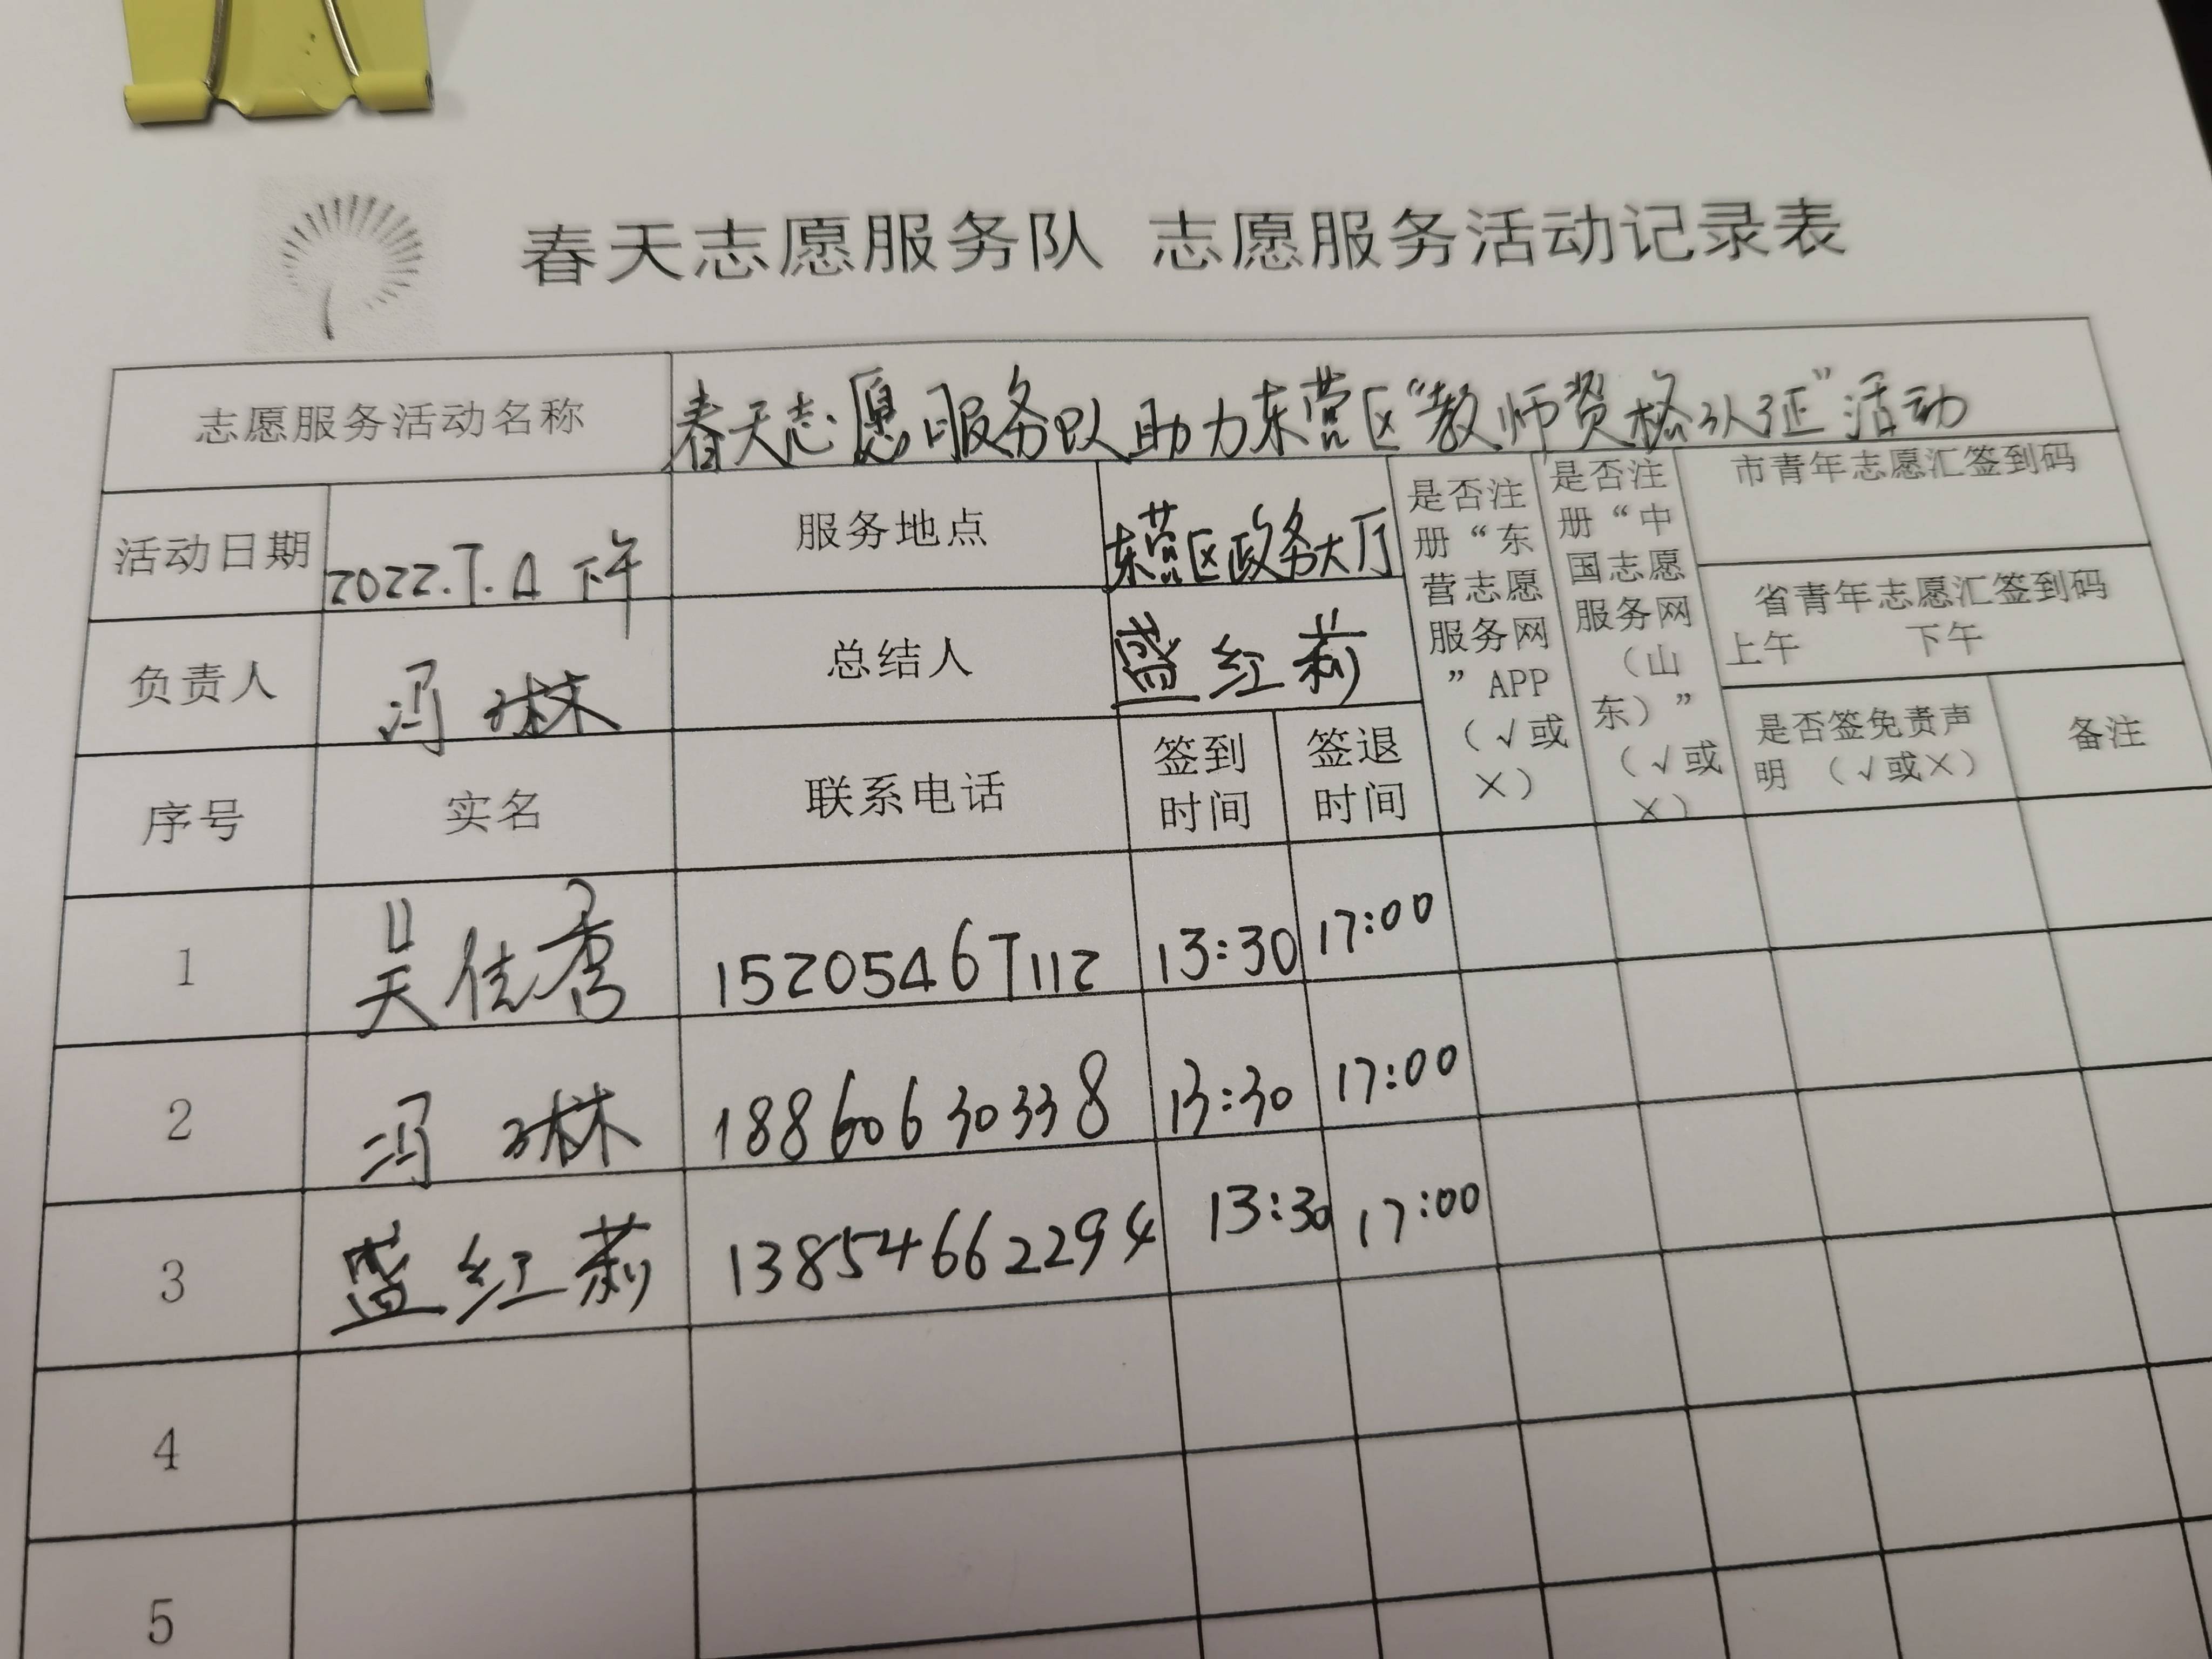 春天志愿服务队 志愿服务活动记录表
志愿服务活动名称 春天志愿服务队助力东营区“教师资格认证”活动
活动日期 2022.7.4 下午 服务地点 东营区政务大厅
负责人 冯琳 总结人 盛红莉
是否注
册“东
营志愿
服务网
”APP
（√或
×）
是否注
册“中
国志愿
服务网
（山
东）”
（√或
×）
市青年志愿汇签到码
省青年志愿汇签到码
上午 下午
序号 实名 联系电话
签到
时间
签退
时间
是否签免责声
明 （√或×）
备注
1 吴佳秀 15205467112 13:30 17:00
2 冯琳 18860630338 13:30 17:00
3 盛红莉 13854662294 13:30 17:00
4
5